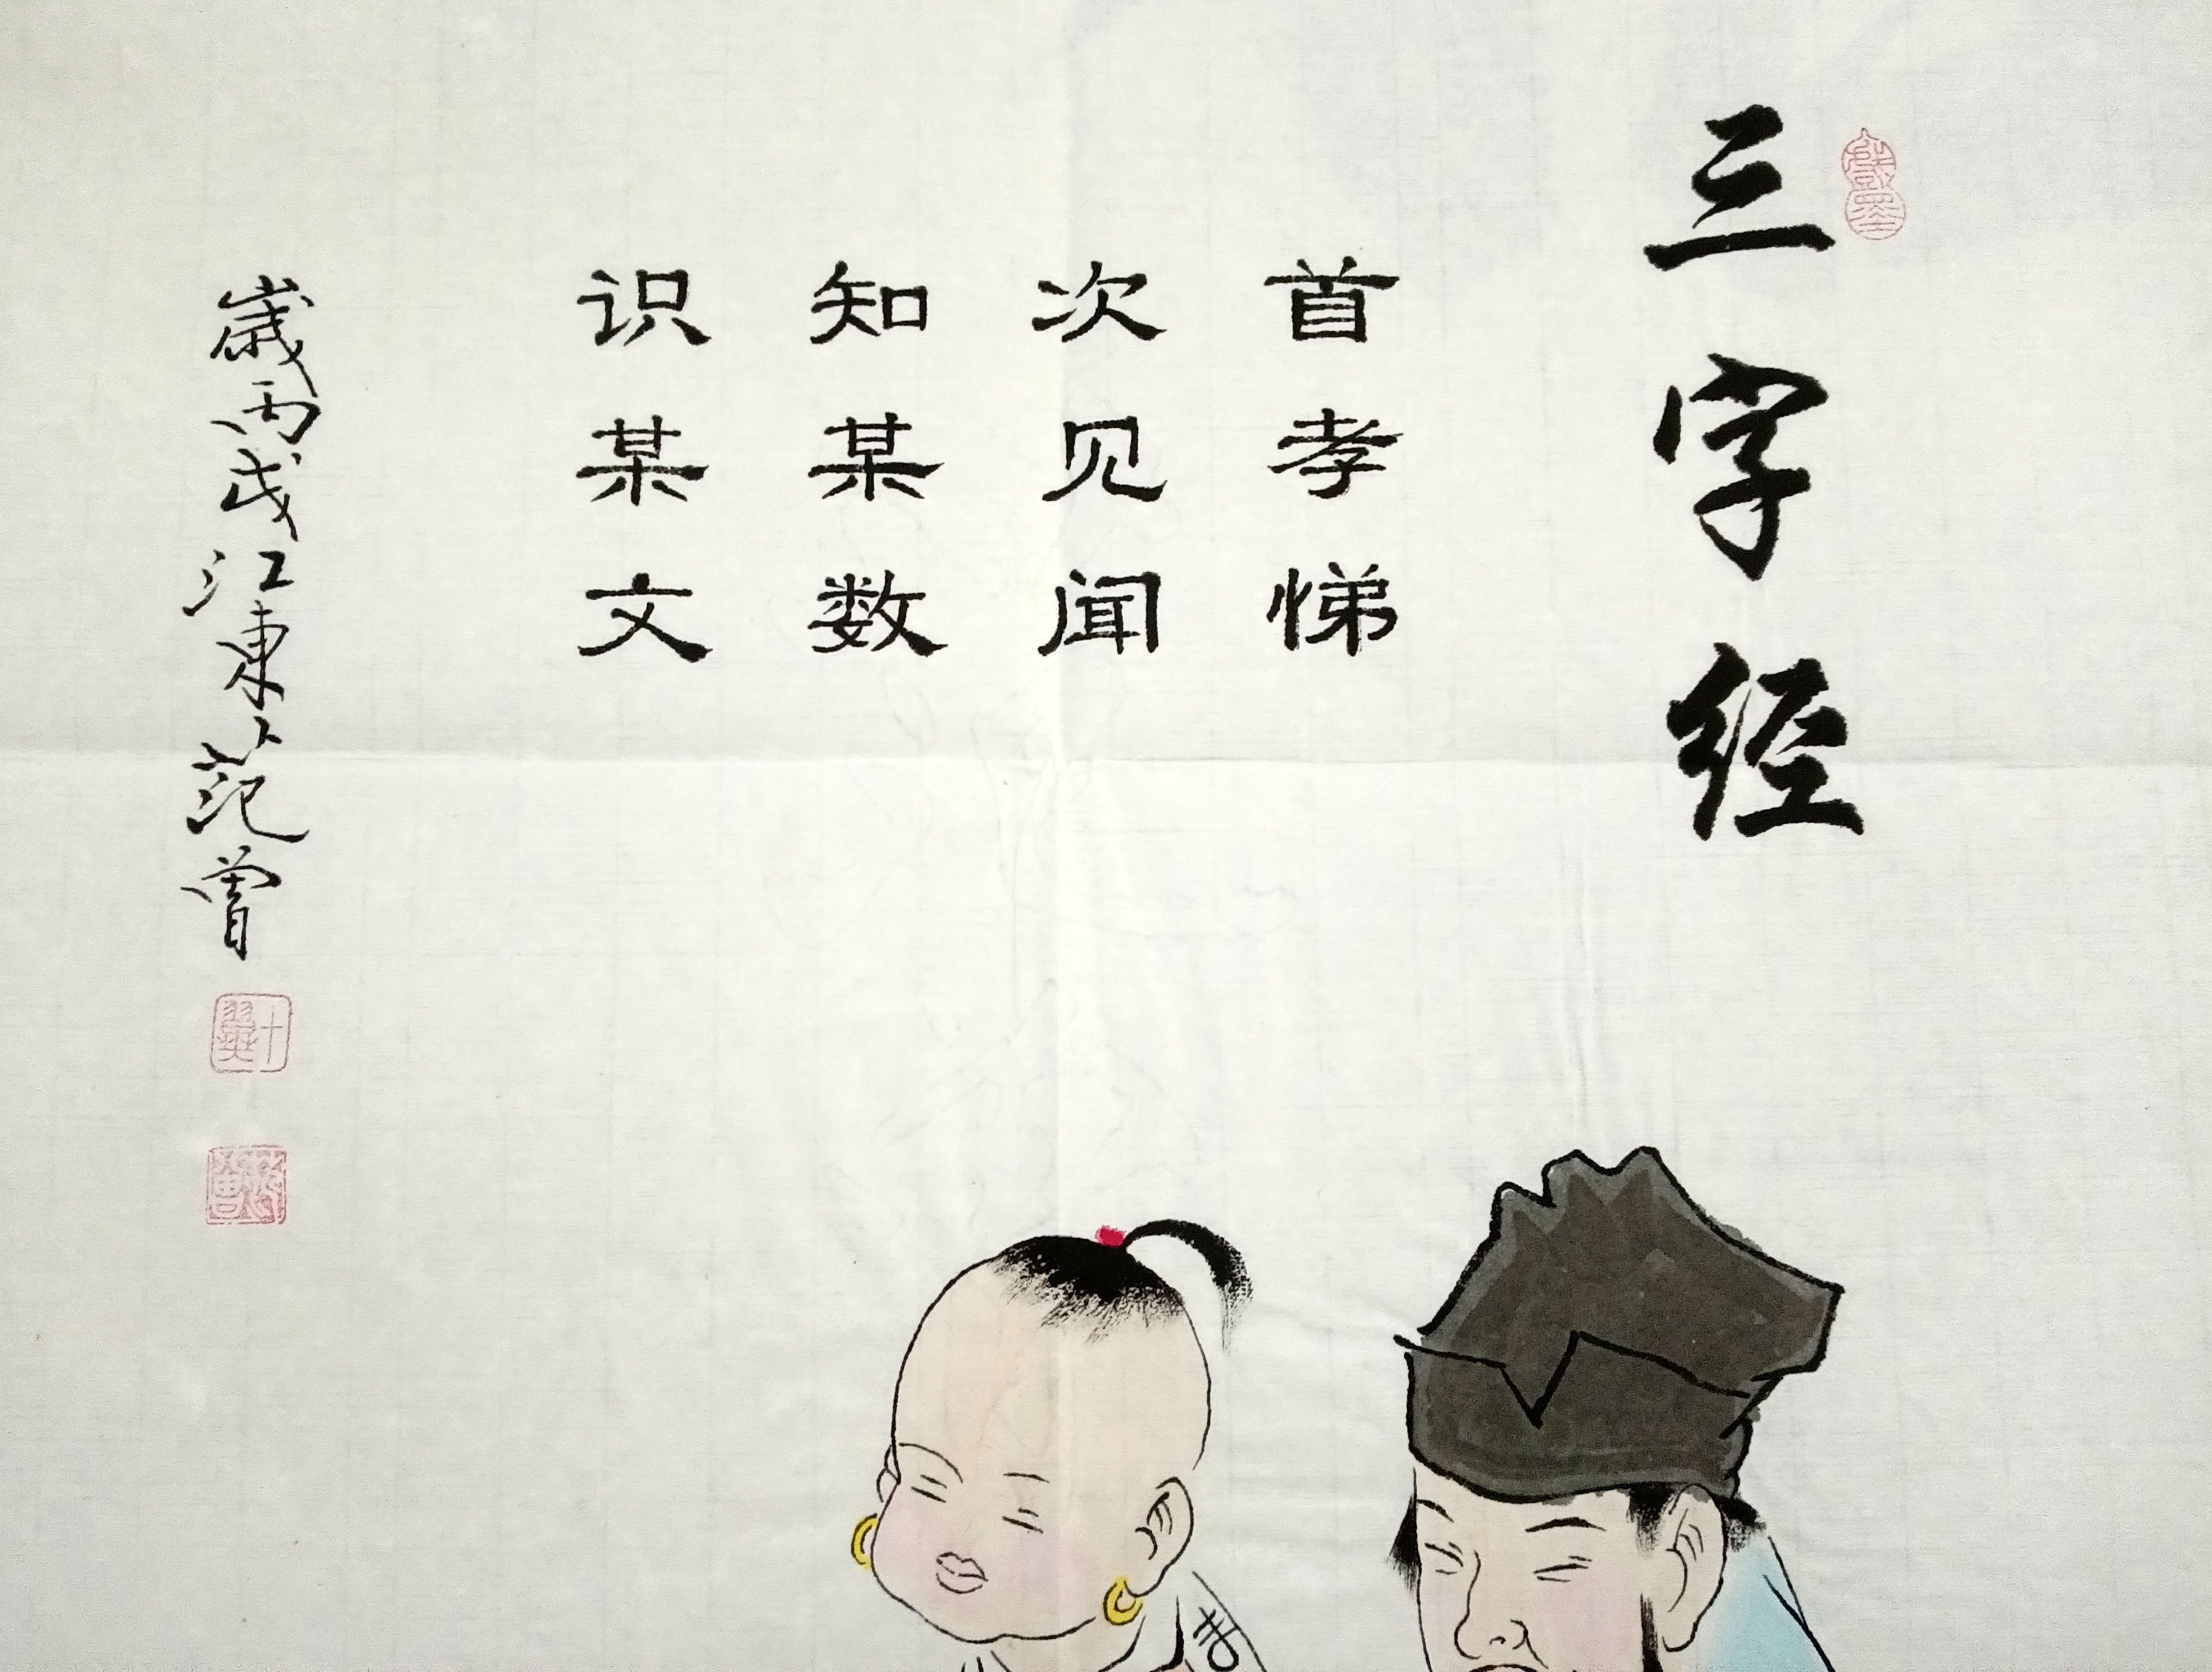 三字经
首孝悌
次见闻
知某数
识某文
歲丙戌江東范曾